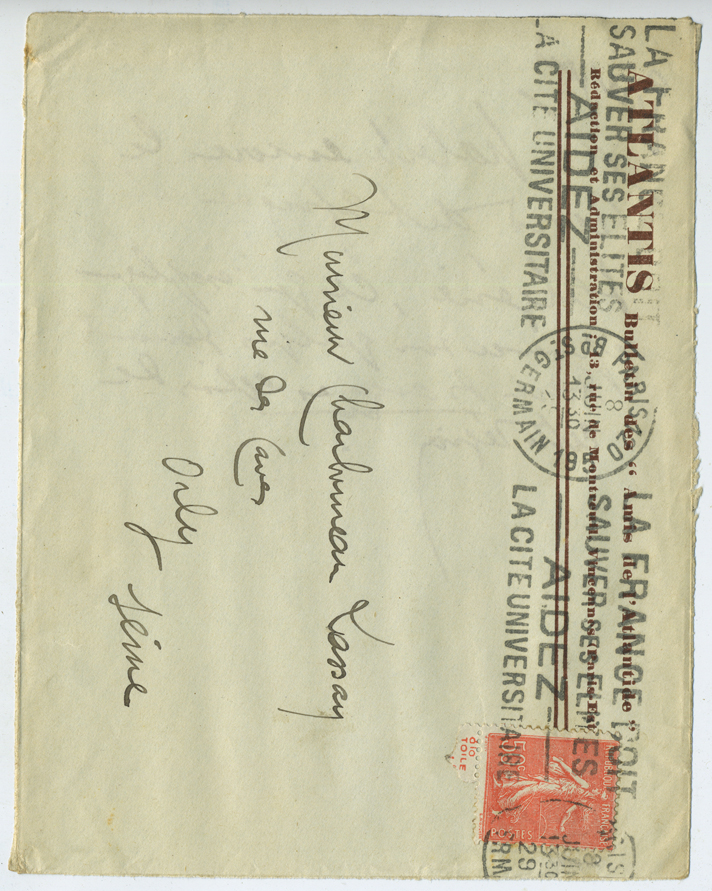 ATLANTIS Bulletin des “ Amis de l'Atlantide ”
Rédaction et Administration : 13, rue de Montreuil, Vincennes (Paris-Est)
LA FRANCE DOIT
SAUVER SES ELITES
AIDEZ
LA CITE UNIVERSITAIRE
PARIS
8
JUIN
13 30
ST GERMAIN
LA FRANCE DOIT
SAUVER SES ELITES
AIDEZ
LA CITE UNIVERSITAIRE
8
JUIN
13 30
29
50c
POSTES
TOILE
Monsieur Charbonneau Lassay
rue des Caves
Orly
Seine